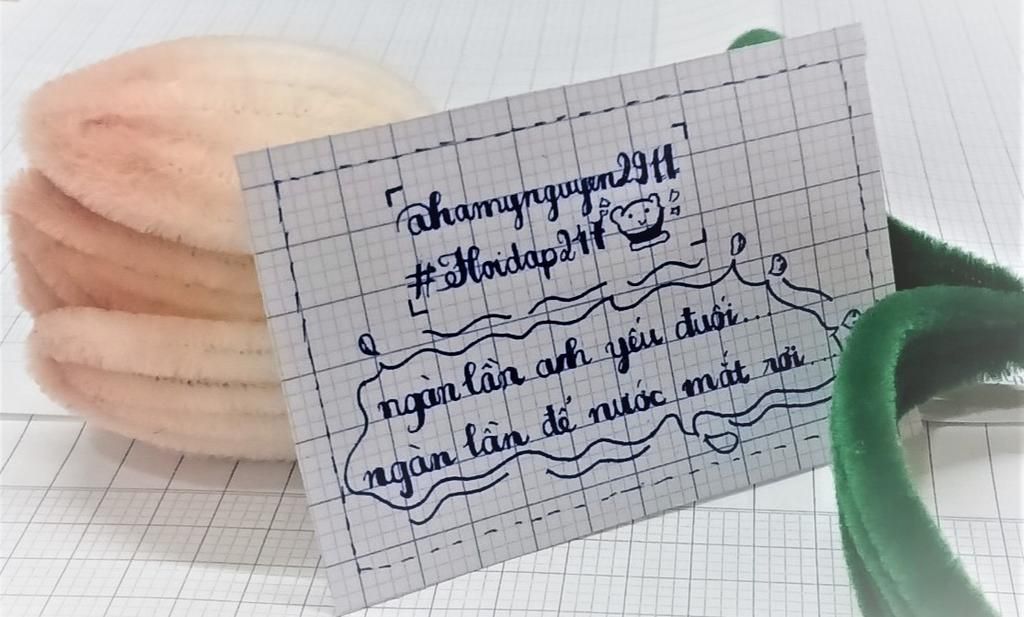 @hamynguyen2911
#Hoidap247
ngàn lần anh yếu đuối...
ngàn lần để nước mắt rơi...